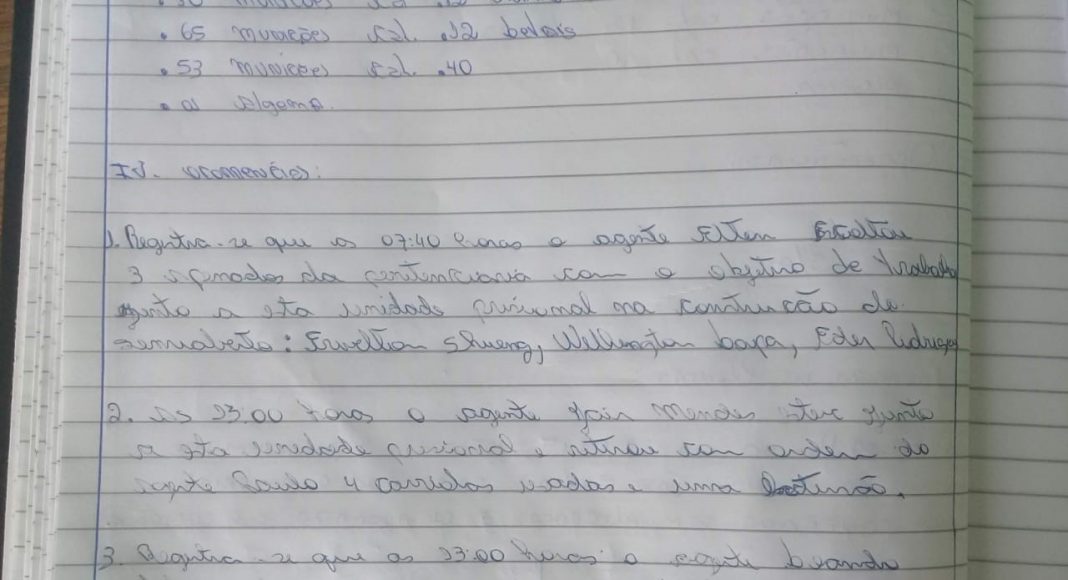 . 65 munições cal. .12 balais
. 53 munições cal. .40
. 01 algema.
IV. ocorrencias:
1. Registra-se que as 07:40 horas o agente Elten Escoltou
3 apenados da penitenciaria com o objetivo de trabalho
junto a esta unidade prisional na construção de
semiaberto: Erivelton Shueng, Wellington, Eder Rodrigues
2. as 13:00 horas o agente Jair Mendes esteve junto
a esta unidade prisional e retirou com ordem do
agente Paulo 4 usados e uma.
3. Registra-se que as 13:00 horas o agente